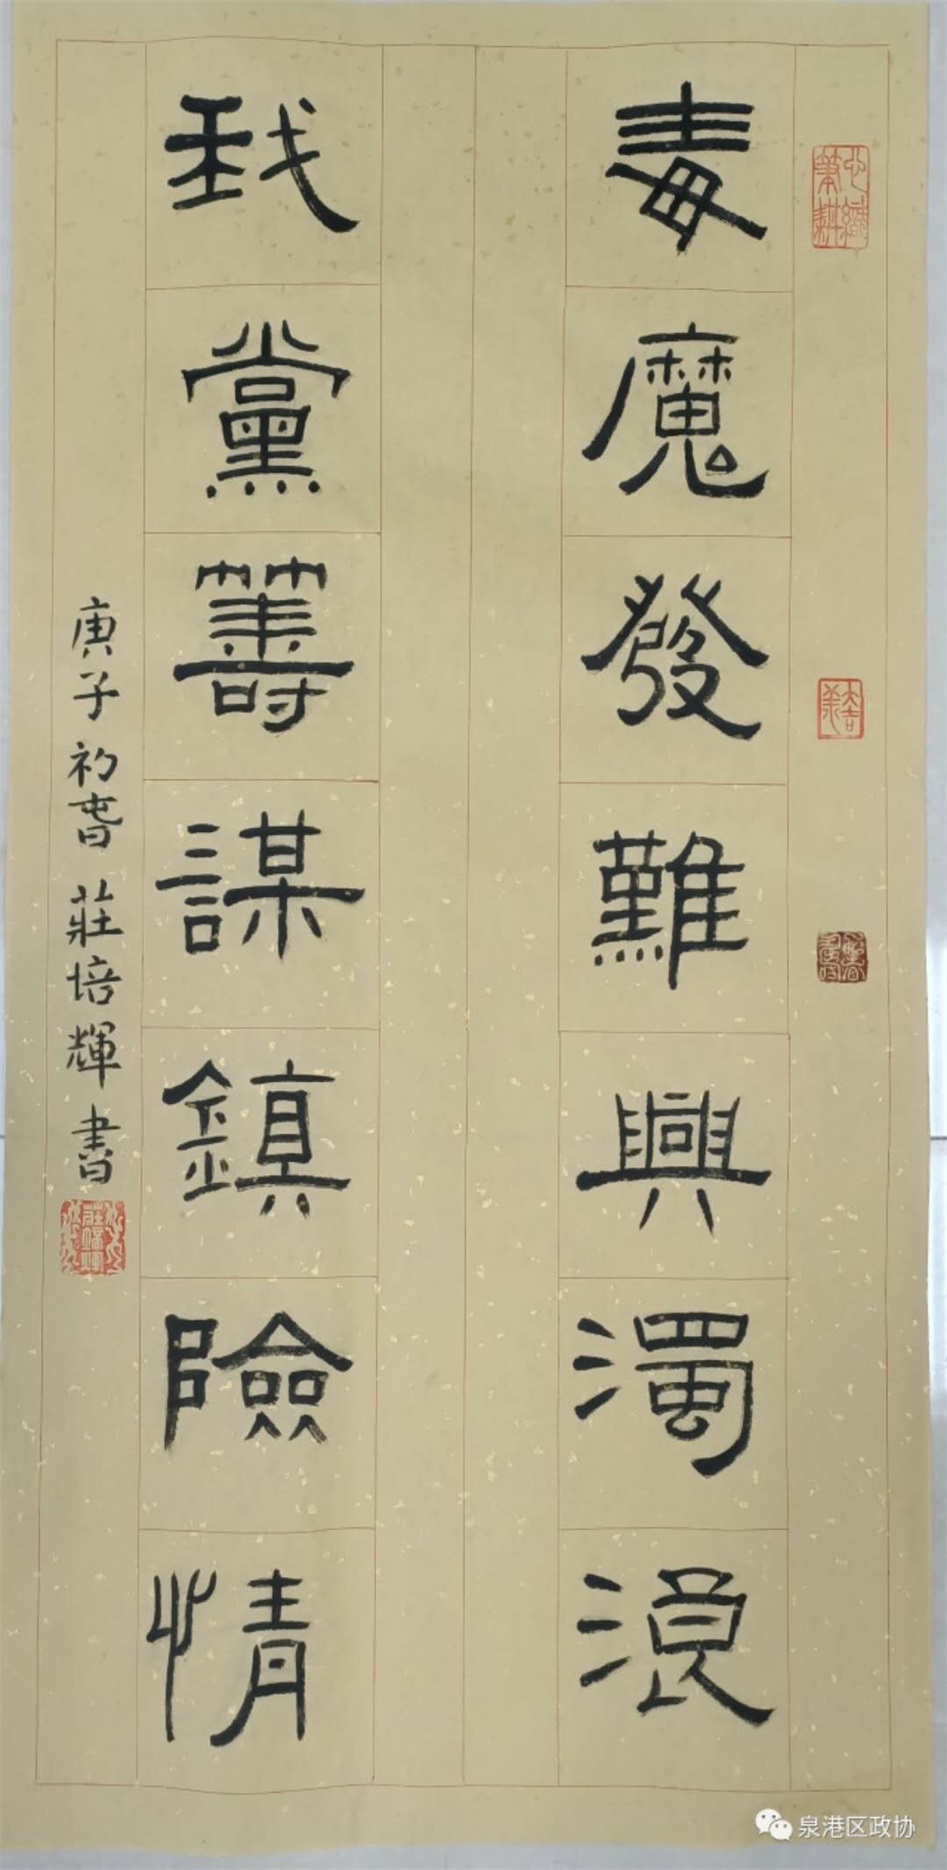 毒魔發難興濁浪
我黨籌謀鎮險情
庚子初春莊培輝書
泉港区政协